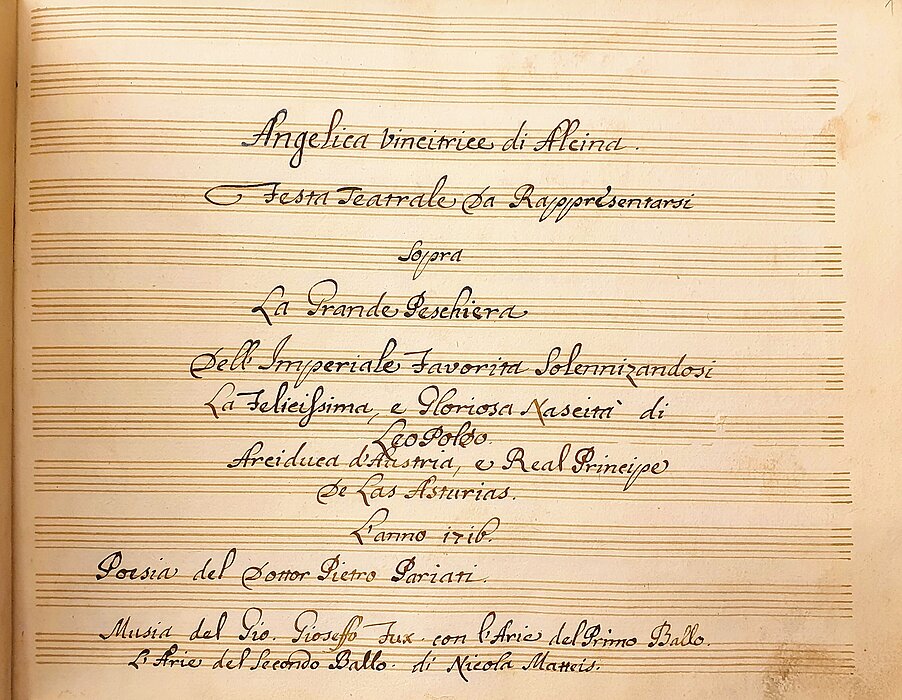 Angelica Vincitrice di Alcina.
Festa Teatrale Da Rappresentarsi
Sopra
La Grande Peschiera
Dell' Imperiale Favorita Solennizandosi
La Felicissima, e Gloriosa Nascità di
LeoPoldo.
Arciduca d'Austria, e Real Principe
De Las Asturias.
L'anno 1716.
Poesia del Dottor Pietro Pariati.
Musia del Gio. Gioseffo Fux. con l'Arie del Primo Ballo.
L'Arie del Secondo Ballo. di Nicola Matteis.